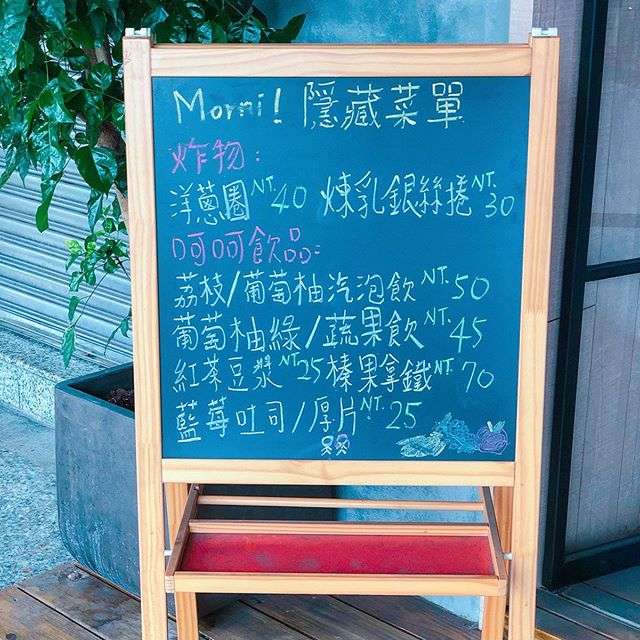 Morni! 隱藏菜單
炸物:
洋蔥圈 NT.40 煉乳銀絲捲 NT.30
呵呵飲品:
荔枝/葡萄柚汽泡飲 NT.50
葡萄柚綠/蔬果飲 NT.45
紅茶豆漿 NT.25 榛果拿鐵 NT.70
藍莓吐司/厚片 NT.25